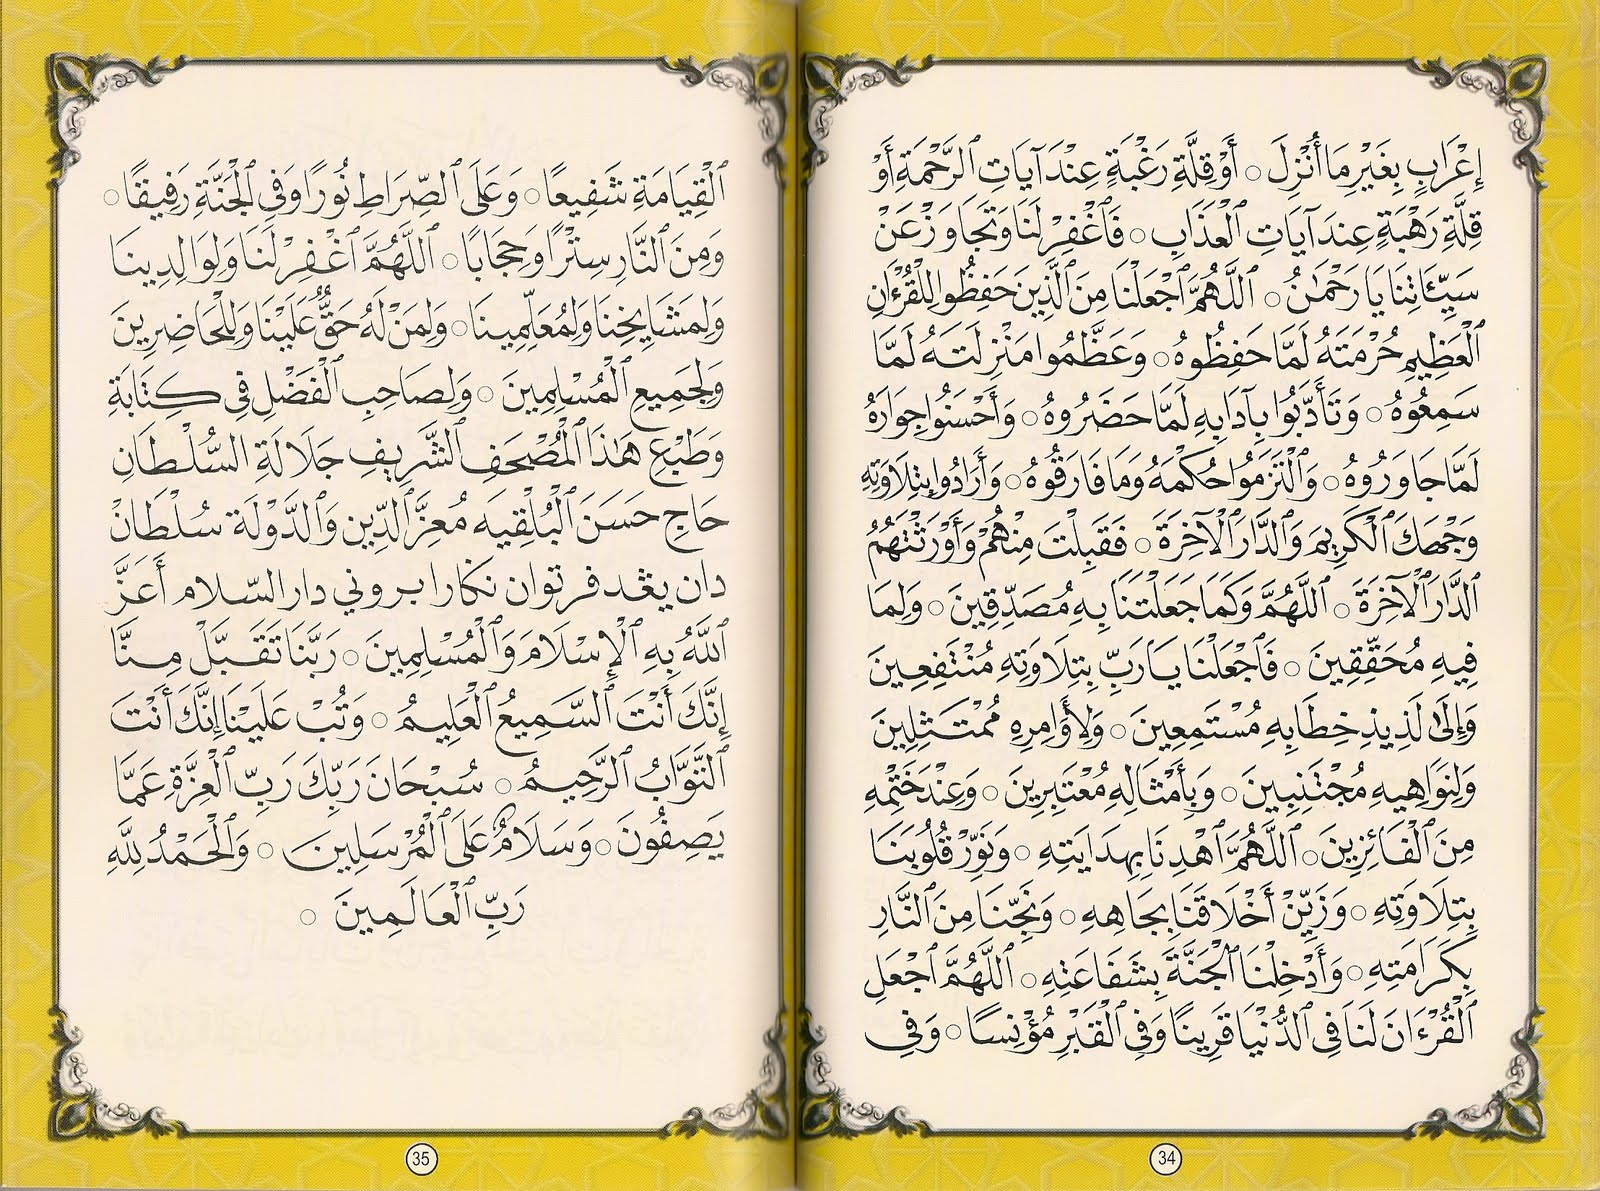 إِعْرَابٍ بِغَيْرِ مَا أُنْزِلَ ○ أَوْ قِلَّةِ رَغْبَةٍ عِنْدَ آيَاتِ ٱلرَّحْمَةِ أَوْ
قِلَّةِ رَهْبَةٍ عِنْدَ آيَاتِ ٱلْعَذَابِ ○ فَٱغْفِرْ لَنَا وَتَجَاوَزْ عَنْ
سَيِّئَاتِنَا يَا رَحْمَٰنُ ○ ٱللَّهُمَّ ٱجْعَلْنَا مِنَ ٱلَّذِينَ حَفِظُوا لِلْقُرْءَانِ
ٱلْعَظِيمِ حُرْمَتَهُ لَمَّا حَفِظُوهُ ○ وَعَظَّمُوا مَنْزِلَتَهُ لَمَّا
سَمِعُوهُ ○ وَتَأَدَّبُوا بِآدَابِهِ لَمَّا حَضَرُوهُ ○ وَأَحْسَنُوا جِوَارَهُ
لَمَّا جَاوَرُوهُ ○ وَٱلْتَزَمُوا حُكْمَهُ وَمَا فَارَقُوهُ ○ وَأَرَادُوا بِتِلَاوَتِهِ
وَجْهَكَ ٱلْكَرِيمَ وَٱلدَّارَ ٱلْآخِرَةَ ○ فَقَبِلْتَ مِنْهُمْ وَأَوْرَثْتَهُمُ
ٱلدَّارَ ٱلْآخِرَةَ ○ ٱللَّهُمَّ وَكَمَا جَعَلْتَنَا بِهِ مُصَدِّقِينَ ○ وَلِمَا
فِيهِ مُحَقِّقِينَ ○ فَٱجْعَلْنَا يَا رَبِّ بِتِلَاوَتِهِ مُنْتَفِعِينَ
وَإِلَىٰ لَذِيذِ خِطَابِهِ مُسْتَمِعِينَ ○ وَلِأَوَامِرِهِ مُمْتَثِلِينَ
وَلِنَوَاهِيهِ مُجْتَنِبِينَ ○ وَبِأَمْثَالِهِ مُعْتَبِرِينَ ○ وَعِنْدَ خَتْمِهِ
مِنَ ٱلْفَائِزِينَ ○ ٱللَّهُمَّ ٱهْدِنَا بِهِدَايَتِهِ ○ وَنَوِّرْ قُلُوبَنَا
بِتِلَاوَتِهِ ○ وَزَيِّنْ أَخْلَاقَنَا بِجَاهِهِ ○ وَنَجِّنَا مِنَ ٱلنَّارِ
بِكَرَامَتِهِ ○ وَأَدْخِلْنَا ٱلْجَنَّةَ بِشَفَاعَتِهِ ○ ٱللَّهُمَّ ٱجْعَلِ
ٱلْقُرْءَانَ لَنَا فِي ٱلدُّنْيَا قَرِينًا وَفِي ٱلْقَبْرِ مُؤْنِسًا ○ وَفِي
34
ٱلْقِيَامَةِ شَفِيعًا ○ وَعَلَى ٱلصِّرَاطِ نُورًا وَفِي ٱلْجَنَّةِ رَفِيقًا ○
وَمِنَ ٱلنَّارِ سِتْرًا وَحِجَابًا ○ ٱللَّهُمَّ ٱغْفِرْ لَنَا وَلِوَالِدِينَا
وَلِمَشَايِخِنَا وَلِمُعَلِّمِينَا ○ وَلِمَنْ لَهُ حَقٌّ عَلَيْنَا وَلِلْحَاضِرِينَ
وَلِجَمِيعِ ٱلْمُسْلِمِينَ ○ وَلِصَاحِبِ ٱلْفَضْلِ فِي كِتَابَةِ
وَطَبْعِ هَٰذَا ٱلْمُصْحَفِ ٱلشَّرِيفِ جَلَالَةِ السُّلْطَانِ
حَاج حَسَنَ ٱلْبُلْقِيَه مُعِزِّ ٱلدِّينِ وَٱلدَّوْلَة سُلْطَانْ
دان يڠدفرتوان نڬارا بروني دارالسّلام أَعَزَّ
ٱللَّهُ بِهِ ٱلْإِسْلَامَ وَٱلْمُسْلِمِينَ ○ رَبَّنَا تَقَبَّلْ مِنَّا
إِنَّكَ أَنْتَ ٱلسَّمِيعُ ٱلْعَلِيمُ ○ وَتُبْ عَلَيْنَا إِنَّكَ أَنْتَ
ٱلتَّوَّابُ ٱلرَّحِيمُ ○ سُبْحَانَ رَبِّكَ رَبِّ ٱلْعِزَّةِ عَمَّا
يَصِفُونَ ○ وَسَلَامٌ عَلَى ٱلْمُرْسَلِينَ ○ وَٱلْحَمْدُ لِلَّهِ
رَبِّ ٱلْعَالَمِينَ ○
35